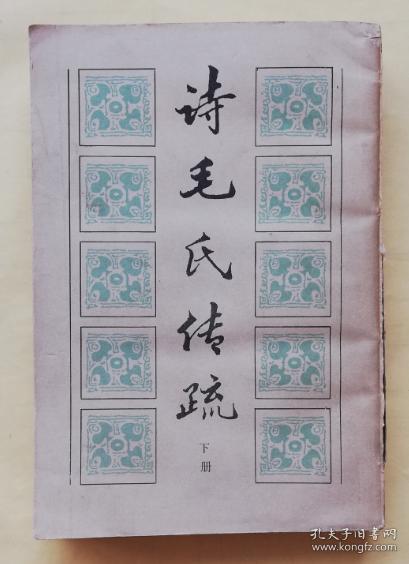 诗毛氏传疏
下册
孔夫子旧书网
www.kongfz.com